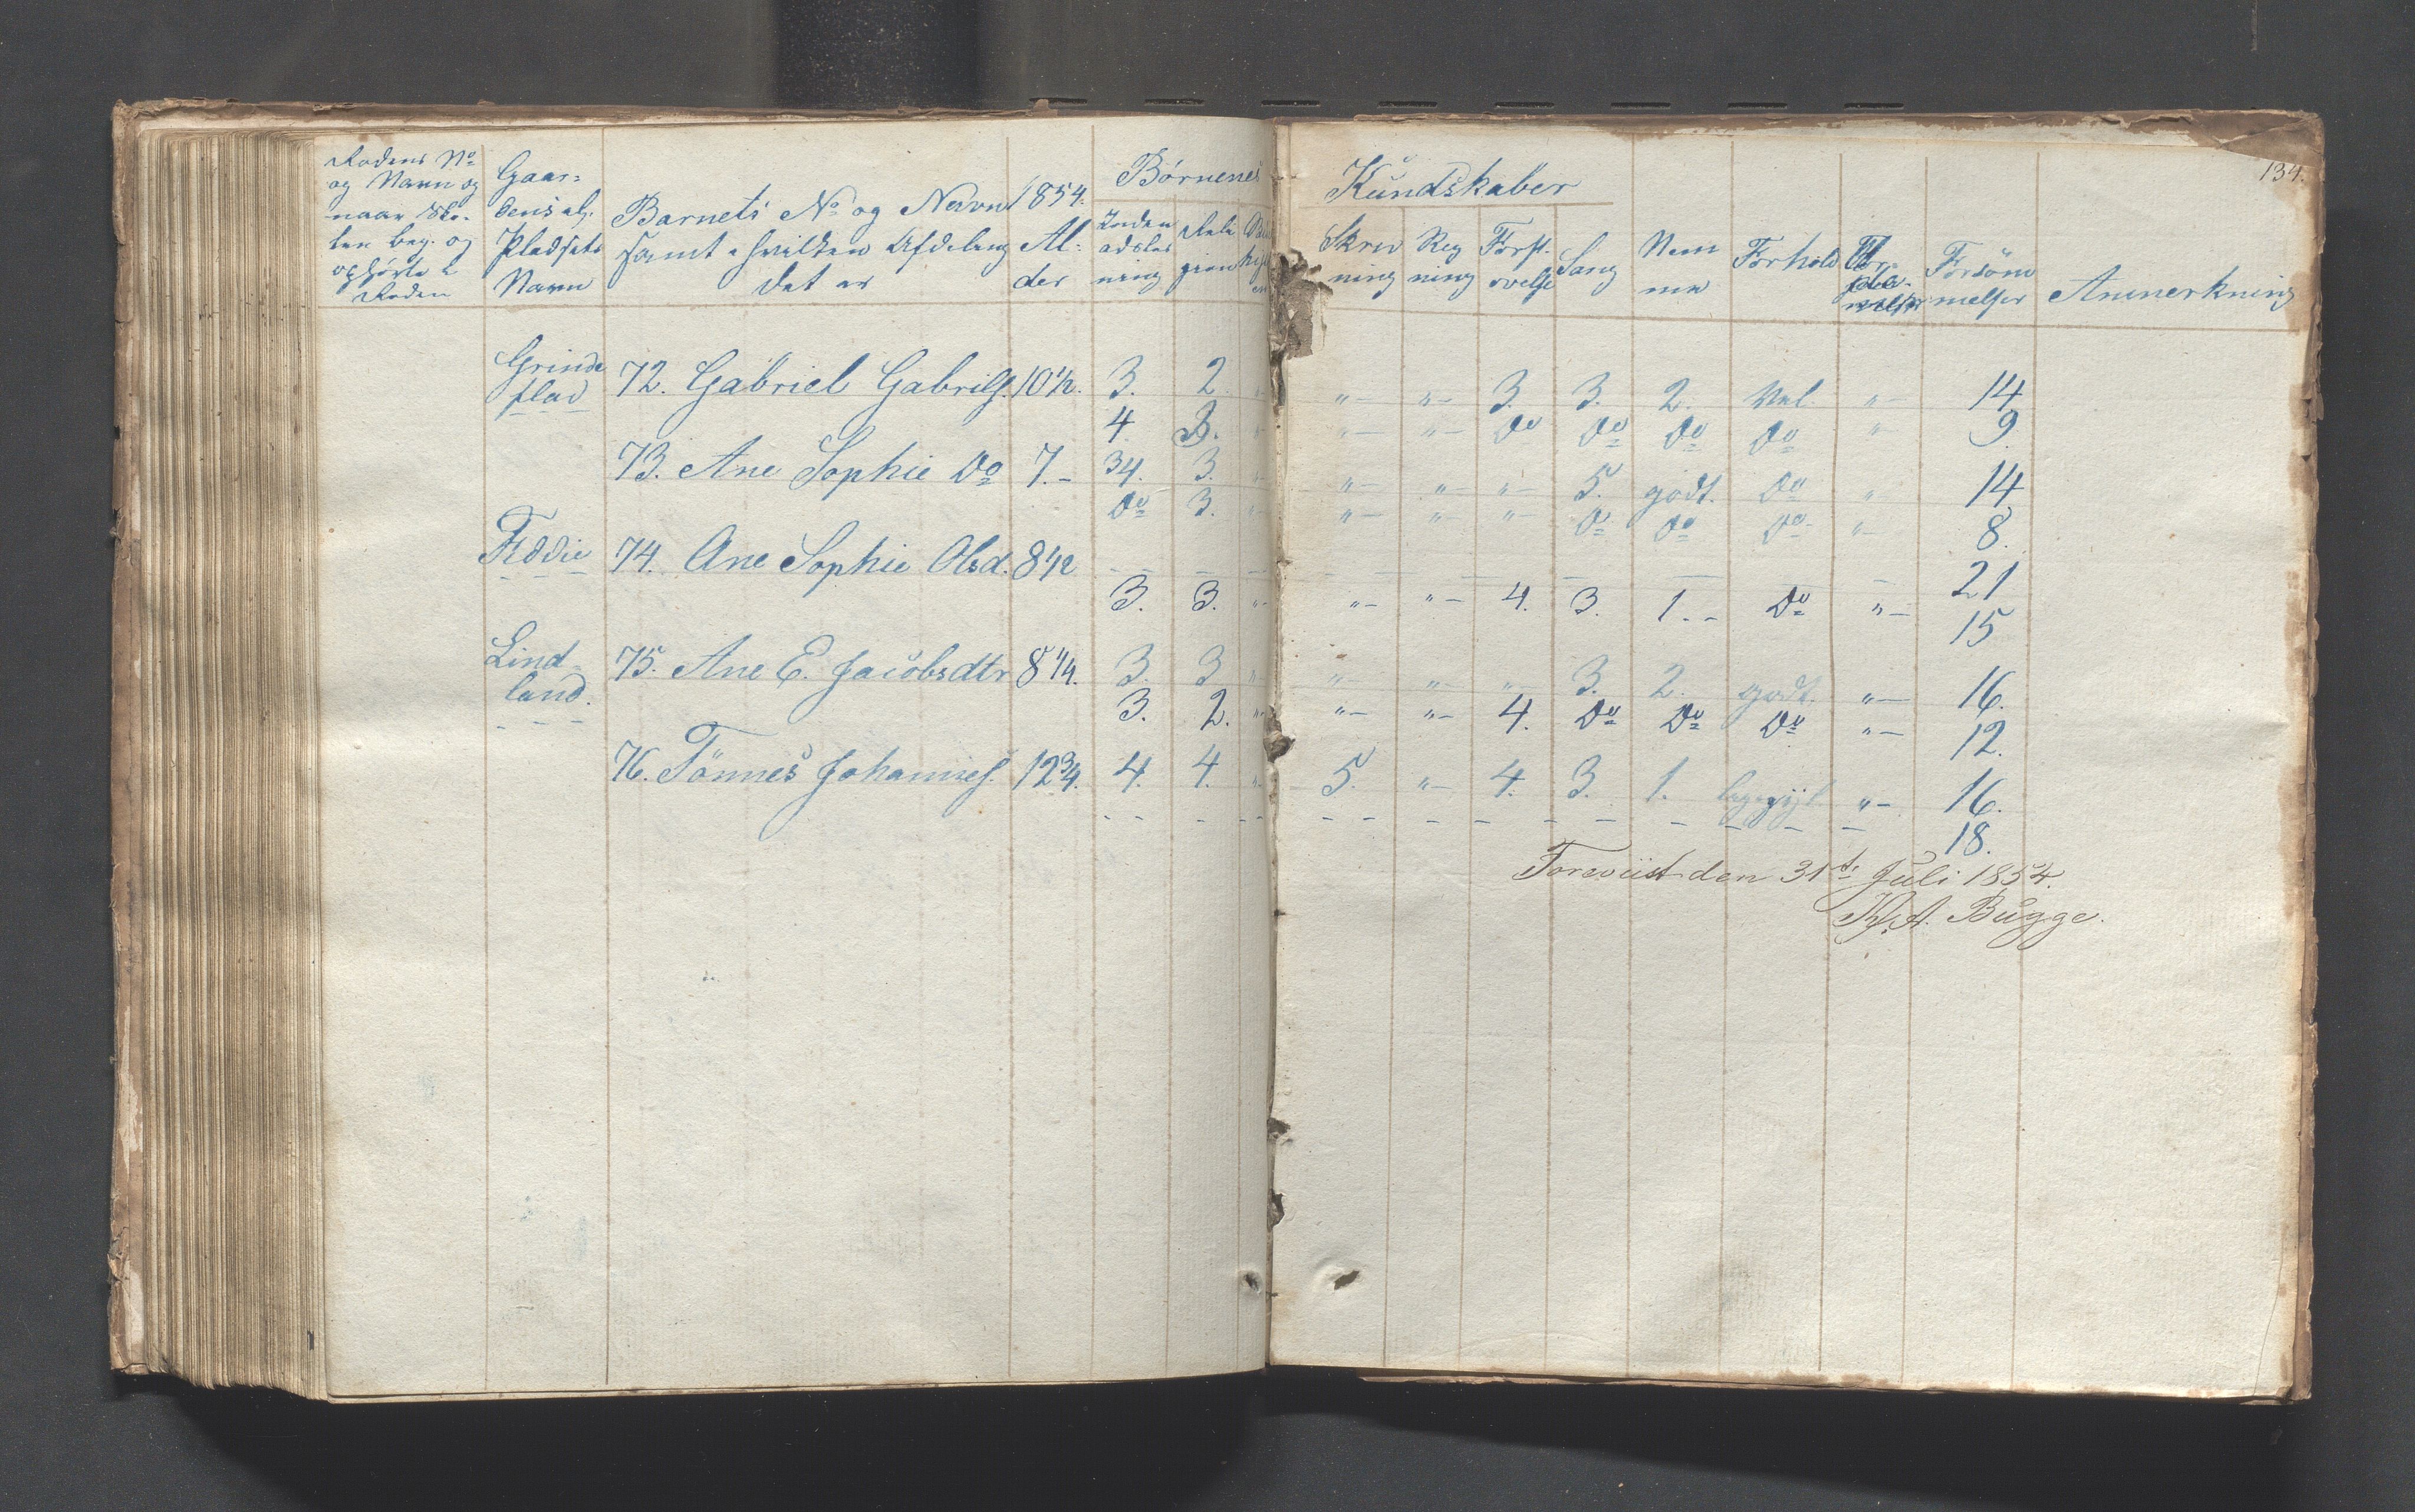 134.
Rodens No
og Navn og
naar Sko-
len beg. og
ophørte i
Roden
Gaar-
dens el.
Pladsets
Navn
Barnets No og Navn
samt i hvilken Afdeling
det er
1854.
Al-
der
Børnenes Kundskaber
Inden
adslæs
ning
Reli
gion
Skriv
ning
Reg
ning
Forst.
øvelse
Sang
Nem
me
Forhold
Forsøm
melser
Anmerkning
Grinde 72. Gabriel Gabrils. 10 1/2. 3. 2 "- "- "- 3. 3. 2. Vel. "- 14
flad 4 3. "- "- "- Do Do Do Do " 9.
73. Ane Sophie Do 7.- 34. 3. "- "- "- "- 5. godt. Do " 14
Do 3. "- "- "- "- Do Do Do "- 8.
Feddie 74. Ane Sophie Olsd. 8 1/2 - - - - - - - - - - 21
3. 3. "- "- "- 4. 3. 1.- Do "- 15
Lind- 75. Ane E. Jacobsdtr 8 1/4. 3. 3 " "- "- "- 3. 2. godt. "- 16.
land. 3. 2. "- "- "- 4. Do Do Do "- 12.
76. Tönnes Johannes. 12 3/4. 4. 4. "- 5. "- 4. 3. 1. "- 16.
- - - - - - - - - - - 18.
Foreviist den 31te Juli 1854.
A. Bugge.